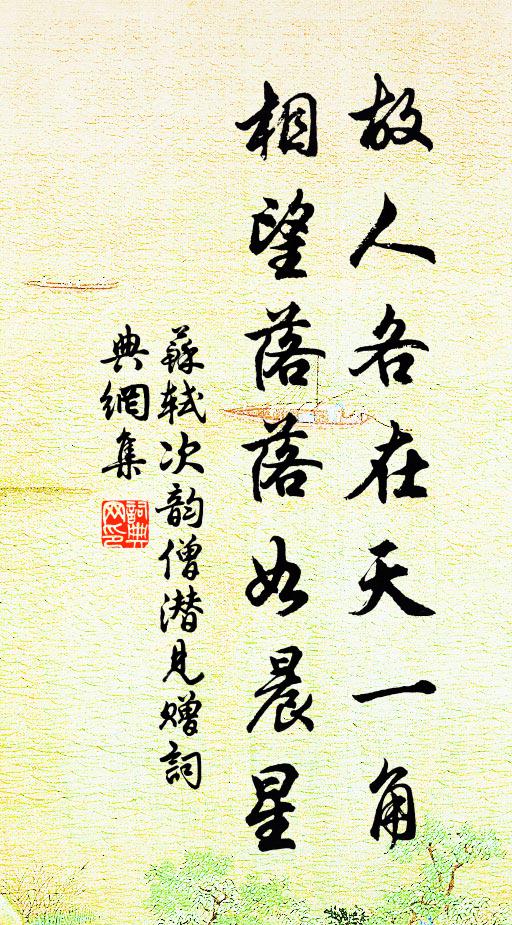 故人各在天一角
相望落落如晨星
蘇軾次韵僧潜見贈詞
典網集
詞典网印